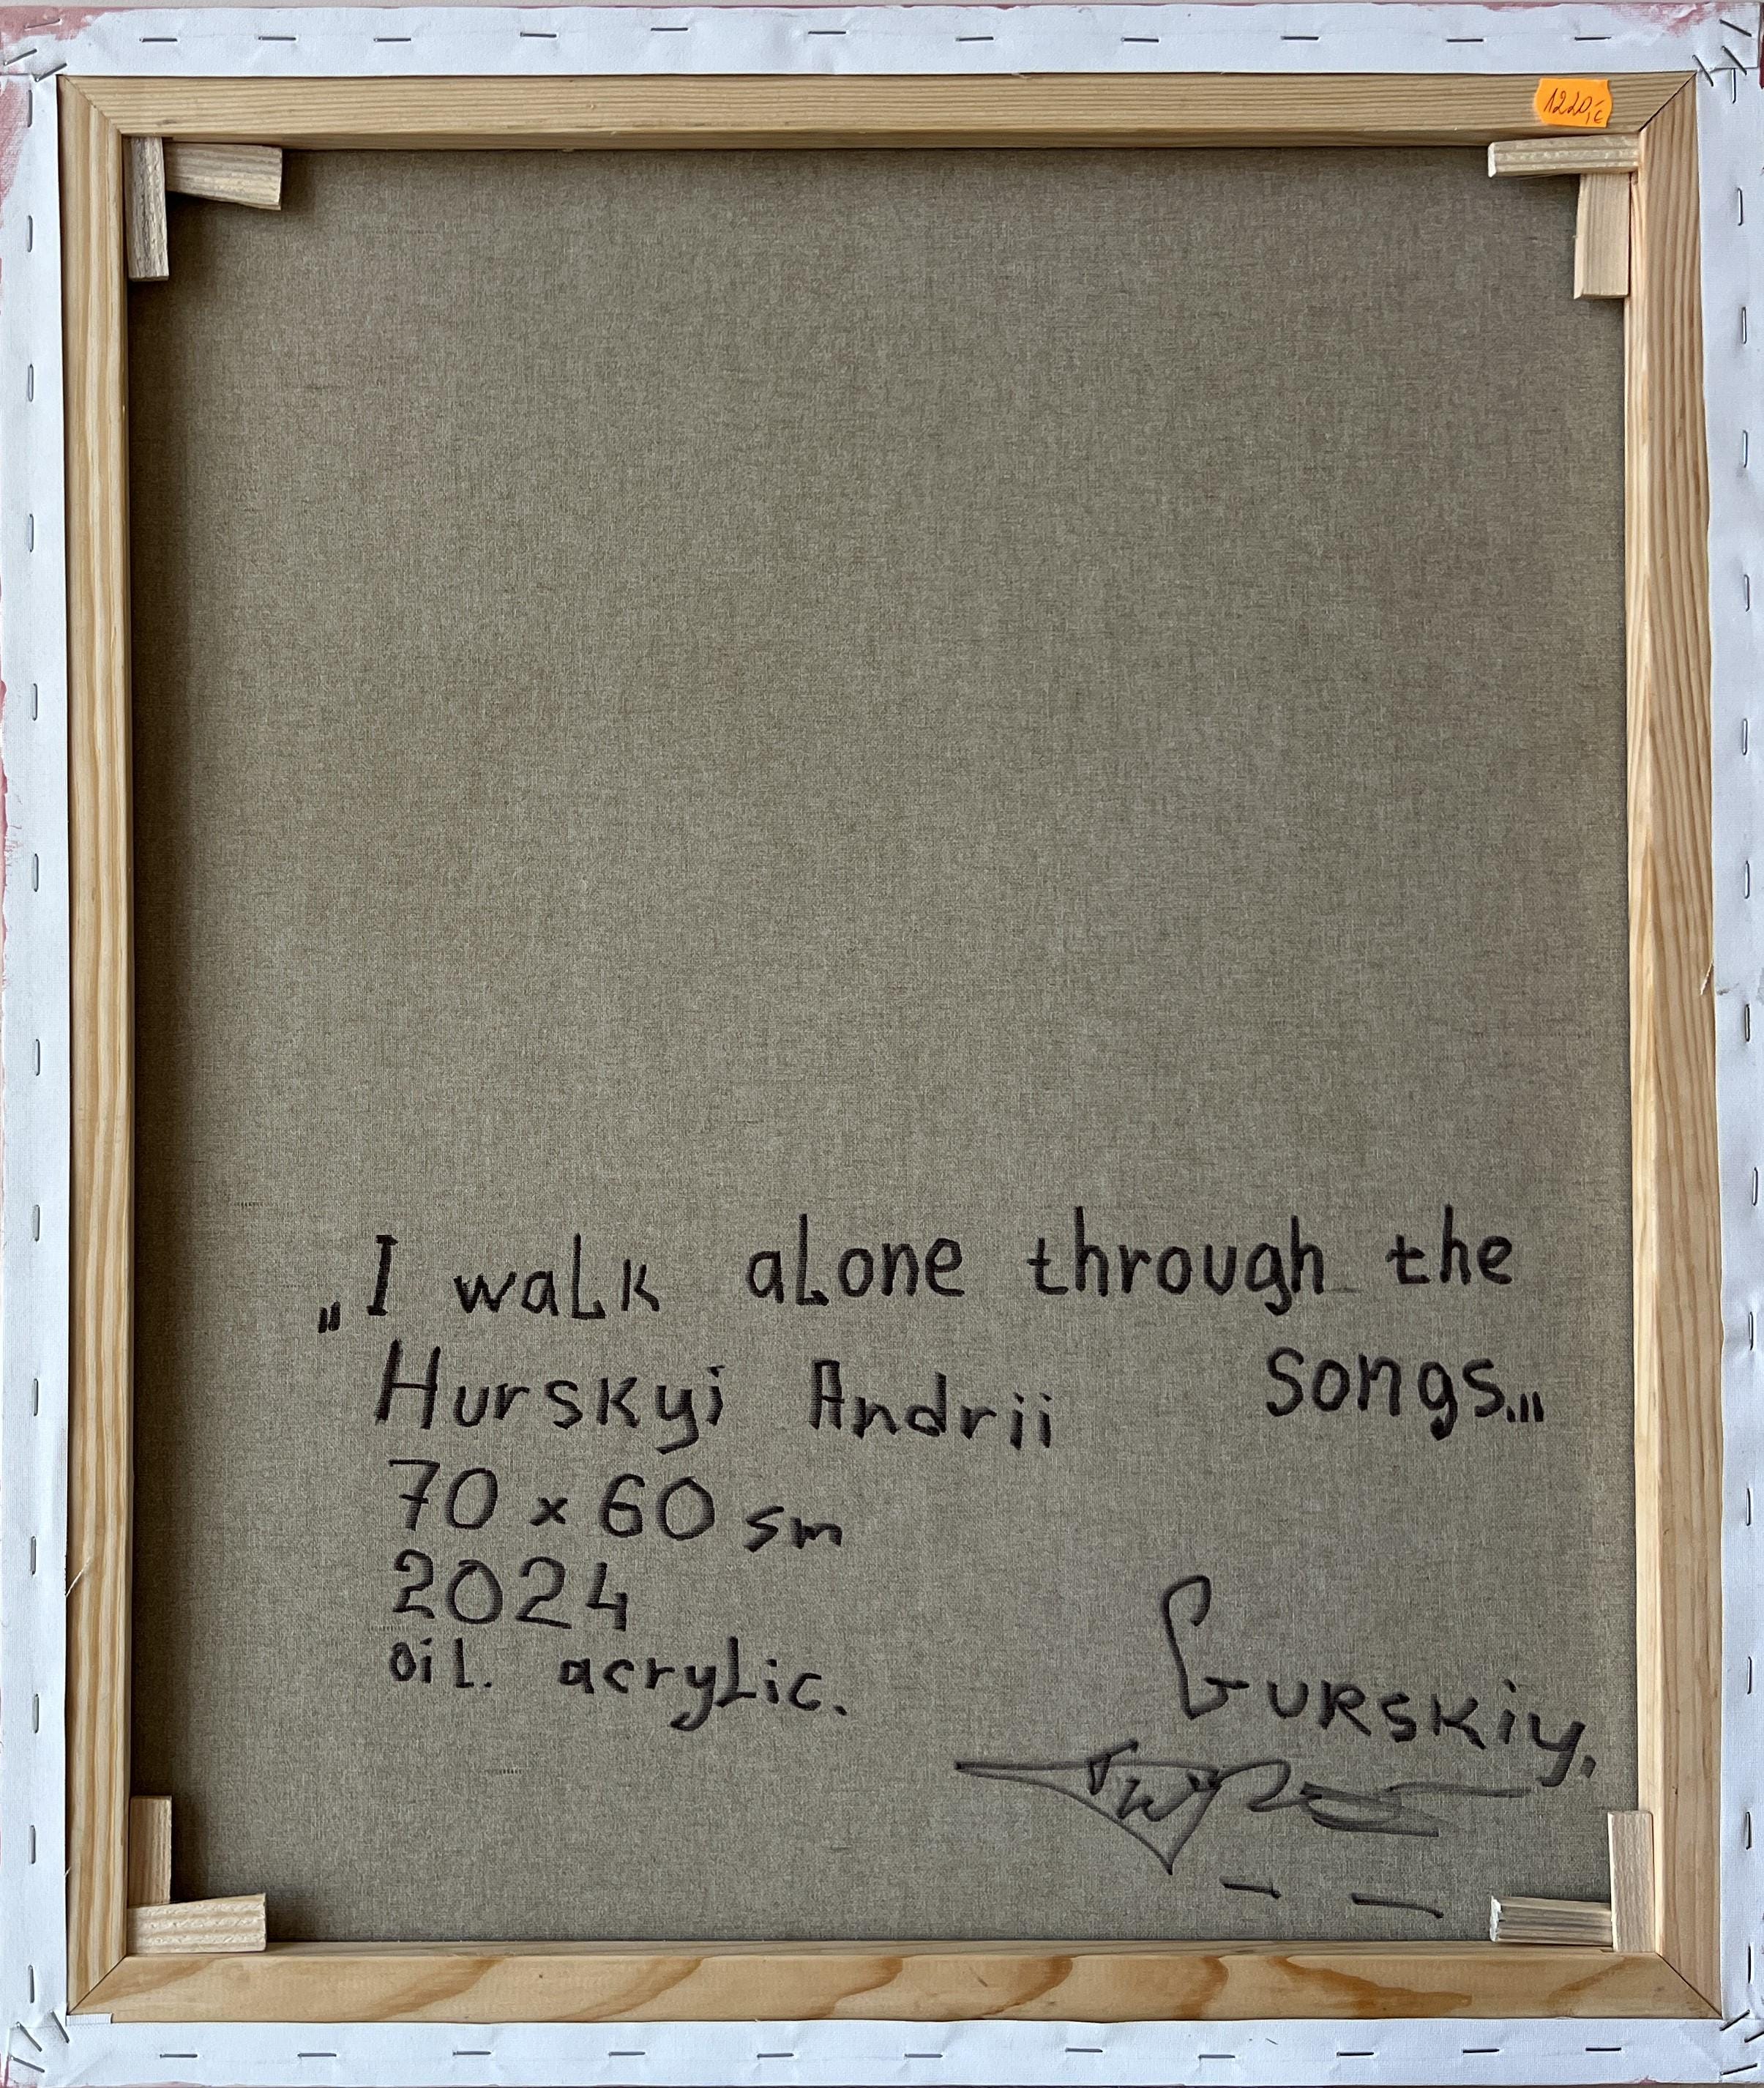 1220,-€
„I walk alone through the
songs..."
Hurskyi Andrii
70 x 60 sm
2024
oil. acrylic.
Gurskiy.